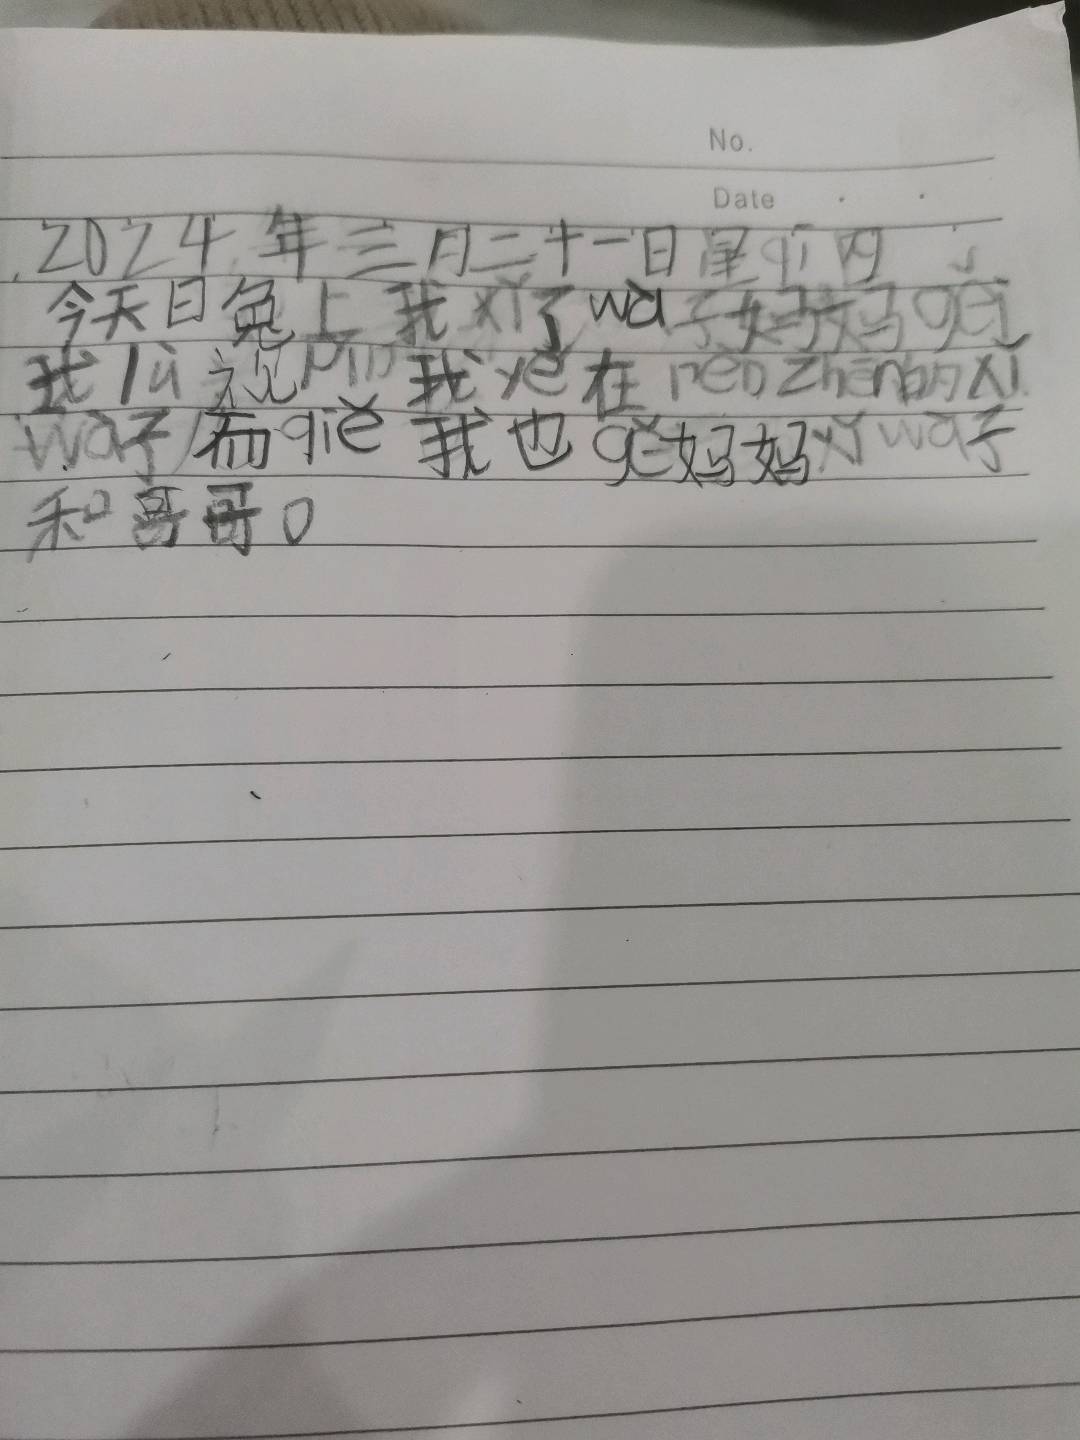 No.
Date
2024年三月二十一日星qī四
今天日兔上我xǐ了wà子妈妈gěi
我lù视pín我yě在rèn zhēn的xǐ
wà子而qiě我也gě妈妈xǐ wà子
和哥哥。